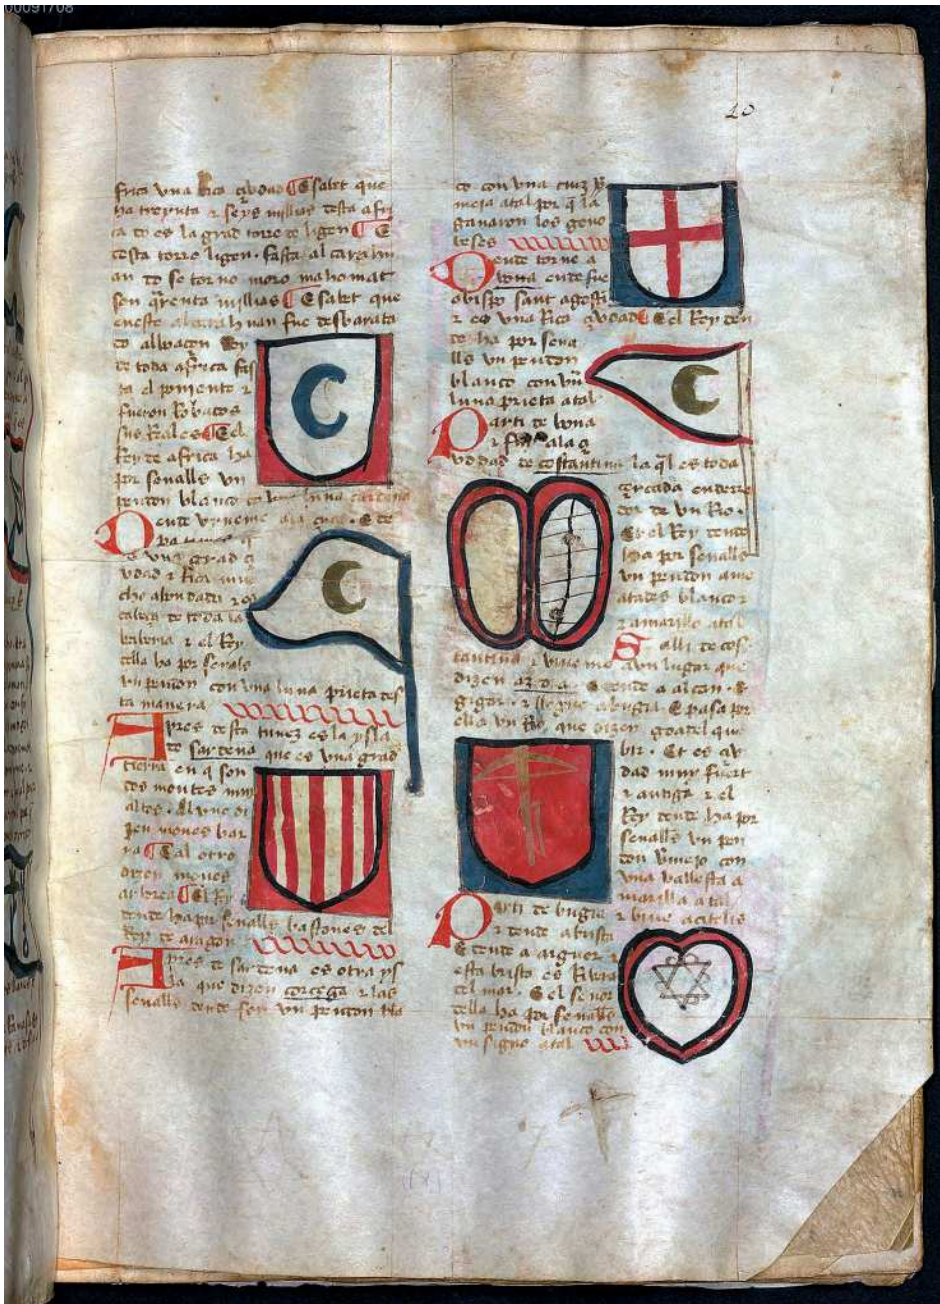 00091708
20
frica una Rica çibdad ¶ E sabet que
ha treynta & seys millas desta afri
ca do es la grad torre de ligon ¶ E
desta torre ligon fasta al carahu
an do se torno moro mahomat
son millas ¶ E sabet que
eneste alcarahuan fue desbarata
do alboaçen Rey
de toda africa fas
ta el poniente &
fueron Robados
sus Reales ¶ El
Rey de africa ha
por senalls un
pendon blanco co una luna cardena
Dende
una grad çi
vdad & Rica mue
che abondada & es
cabeça de toda la
& el Rey
della ha por senals
un pendon con una luna prieta des
ta manera
Apres desta tunez es la ysla
de sardena que es una grad
tierra en q son
dos montes muy
altos. Al uno di
zen mones bar
ra ¶ E al otro
dizen mones
arbrea ¶ El Rey
dende ha por senalls bastones del
Rey de aragon
Apres de sardena es otra ys
la que dizen corcega & las
senalls dende son un pendon bla
co con una cruz
meja atal por q la
ganaron los geno
beses
Dende torne a
bona ende fue
obispo sant agosti
& es una Rica çibdad ¶ E el Rey den
de ha por sena
lls un pendon
blanco con
luna prieta atal
Parti de bona
& ala çi
vdad de costantina la ql es toda
çercada enderre
dor de un Rio.
Et el Rey dende
ha por senalls
un pendon
blanco &
& amarillo atal
Salli de cos
tantina & vine me a un lugar que
dizen dende a alcan
& llegue a bugia. E pasa por
ella un Rio que dizen guadel que
bir. Et es çiv
dad muy fuert
& antiga & el
Rey dende ha por
senalls un pen
don con
una vallesta a
marilla atal
Parti de bugia
& dende a
E dende a &
esta es Ribera
del mar. E el senor
della ha por senalls
un pendon blanco con
un signo atal